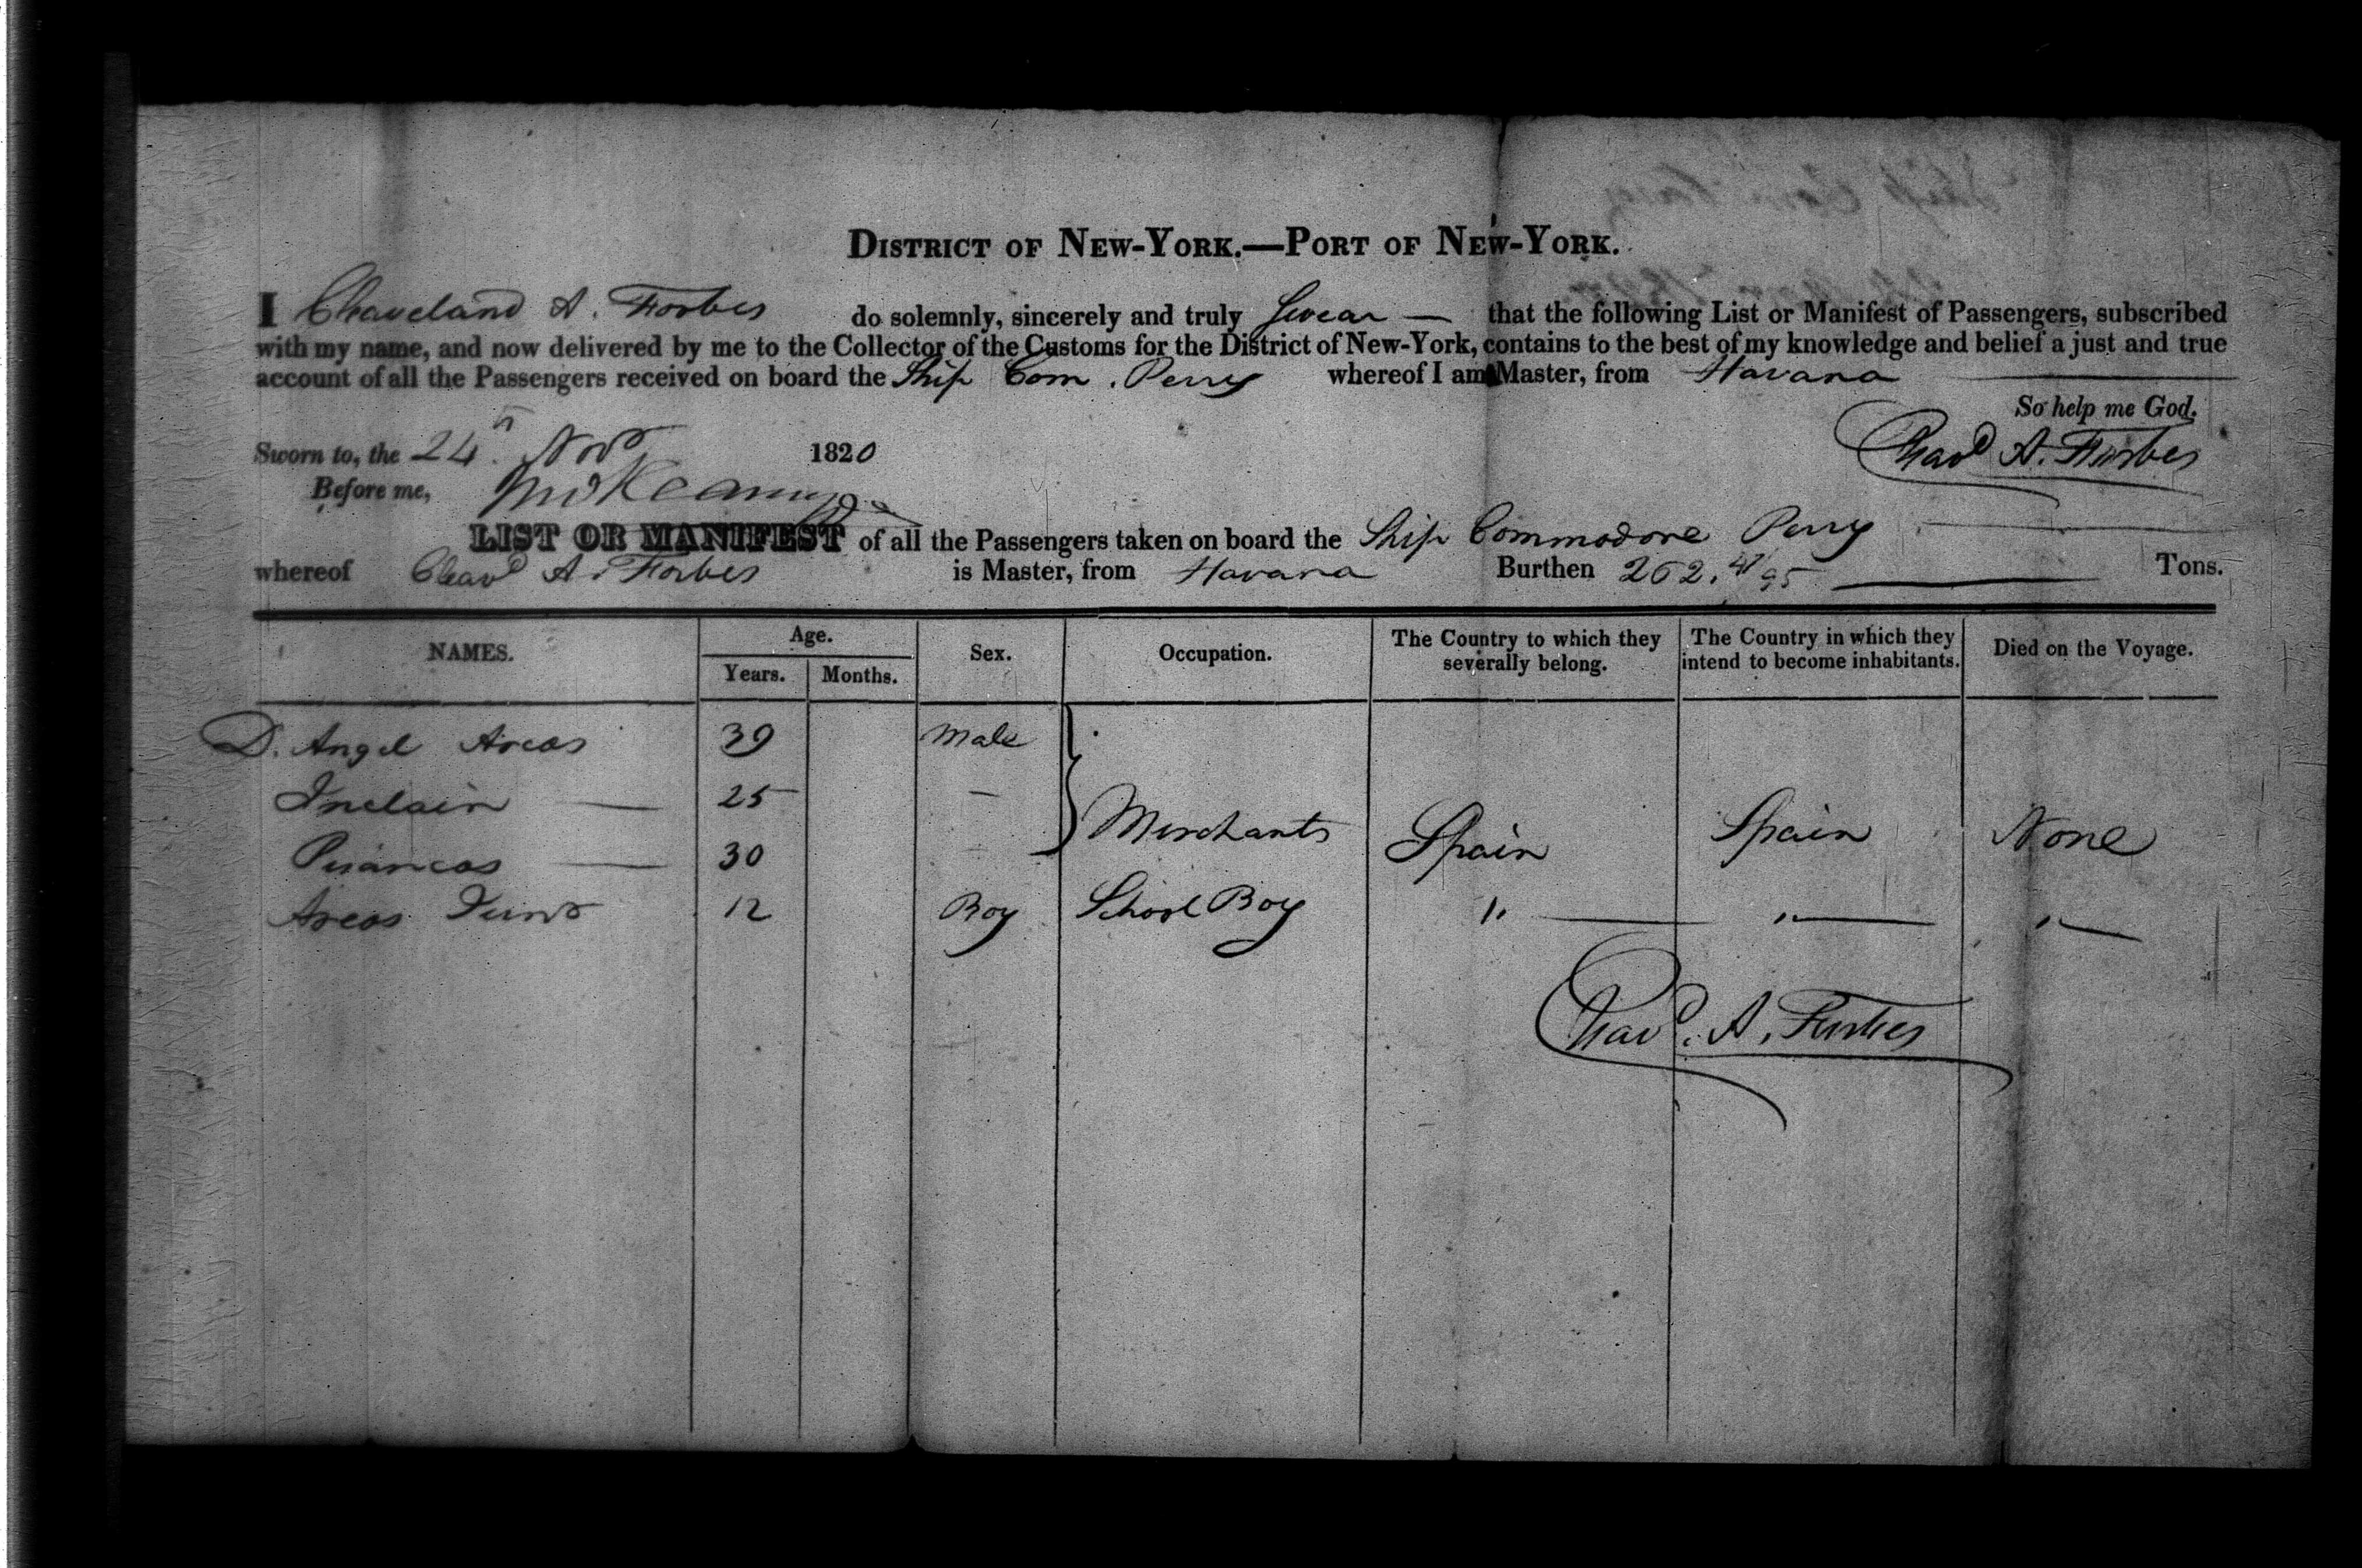 DISTRICT OF NEW-YORK.—PORT OF NEW-YORK.
I Cleaveland A. Forbes do solemnly, sincerely and truly Swear — that the following List or Manifest of Passengers, subscribed
with my name, and now delivered by me to the Collector of the Customs for the District of New-York, contains to the best of my knowledge and belief a just and true
account of all the Passengers received on board the Ship Com. Perry whereof I am Master, from Havana
So help me God.
Sworn to, the 24th Nov 1820
Cleavd A. Forbes
Before me,
LIST OR MANIFEST of all the Passengers taken on board the Ship Commodore Perry
whereof Cleavd A. Forbes is Master, from Havana Burthen 262. 41/95 Tons.
NAMES. Age. Years. Months. Sex. Occupation. The Country to which they severally belong. The Country in which they intend to become inhabitants. Died on the Voyage.
D. Angel Arcos 39 Male
Inclain — 25 —
Merchants Spain Spain None
30
Arcos Junr 12 Boy School Boy " — " — " —
Cleavd. A. Forbes